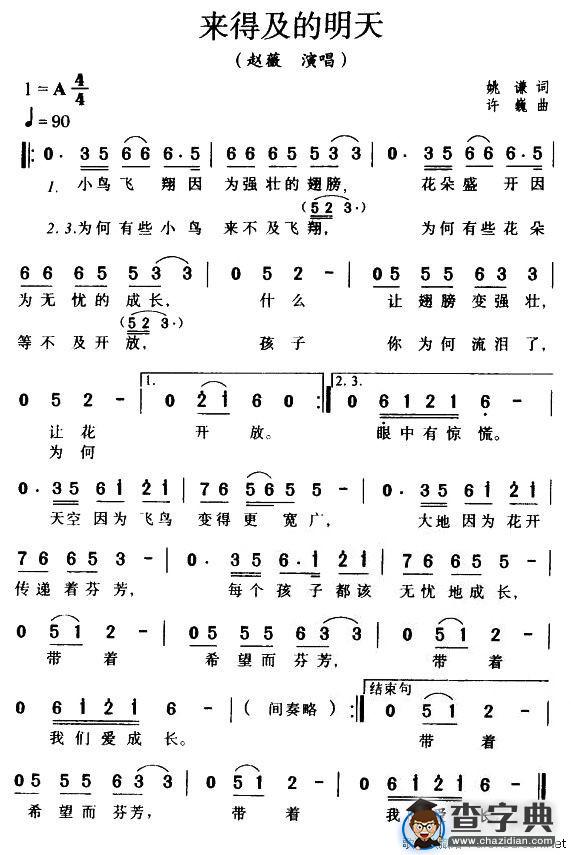 来得及的明天
(赵薇 演唱)
1=A 4/4
姚谦词
许巍曲
♩=90
‖: 0· 35 66 6·5 | 66 65 53 3 | 0· 35 66 6·5 |
1. 小鸟飞 翔因 为强壮的翅膀, 花朵盛 开因
(5 2 3·)
2.3.为何有些小鸟 来不及飞翔, 为何有些花朵
66 65 53 3 | 0 5 2 - | 05 55 63 3 |
为无忧的成长, 什么 让翅膀变强壮,
(5 2 3·)
等不及开放, 孩子 你为何流泪了,
1. 2.3.
0 5 2 - | 0 21 6 0 :‖ 0 6121 6 - |
让花 开放。 眼中有惊慌。
为何
0· 35 61 21 | 76 565 5 | 0· 35 61 21 |
天空因为飞鸟 变得更宽广, 大地因为花开
76 65 3 - | 0· 35 6·1 21 | 76 65 5 - |
传递着芬芳, 每个孩子都该 无忧地成长,
0 51 2 - | 05 55 63 3 | 0 51 2 - |
带着 希望而芬芳, 带着
结束句
0 6121 6 - | (间奏略) :‖ 0 51 2 - |
我们爱成长。 带着
05 55 63 3 | 0 51 2 - | 0 6121 6 - ‖
希望而芬芳, 带着 我 长
查字典
www.chazidian.com